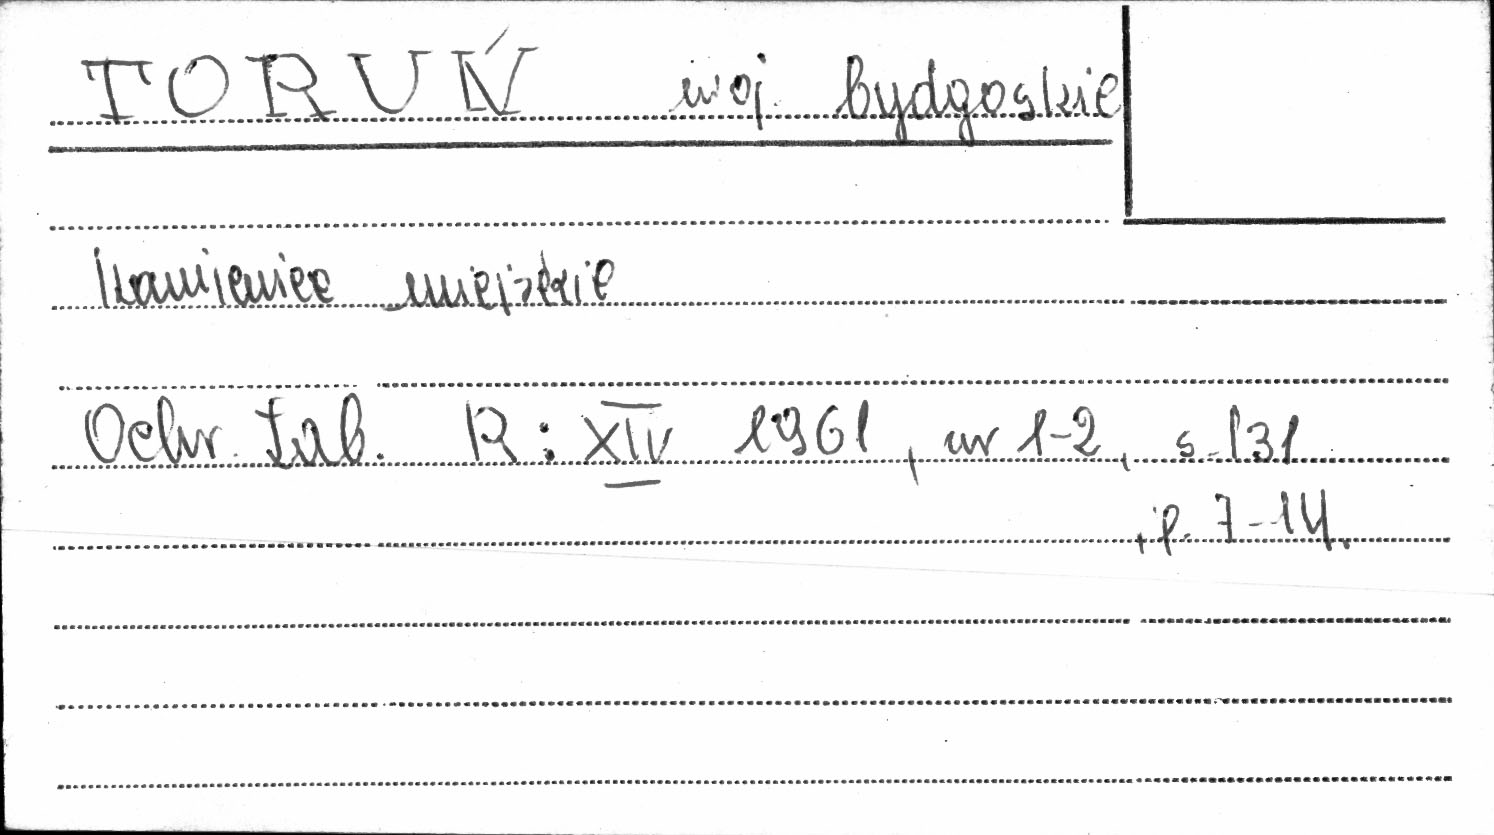 TORUŃ woj. bydgoskie
Kamienice miejskie
Ochr. Zab. R: XIV 1961, nr 1-2, s. 131
, p. 7-14.